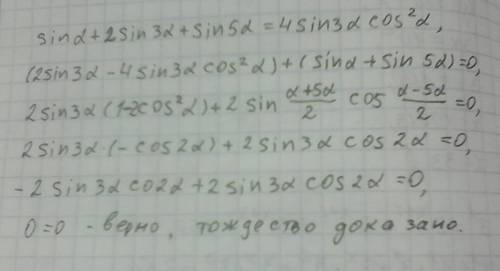 sinα+2sin3α+sin5α=4sin3αcos²α,
(2sin3α-4sin3αcos²α)+(sinα+sin5α)=0,
2sin3α(1-2cos²α)+2sin (α+5α)/2 cos (α-5α)/2=0,
2sin3α·(-cos2α)+2sin3αcos2α=0,
-2sin3αco2α+2sin3αcos2α=0,
0=0 - верно, тождество доказано.